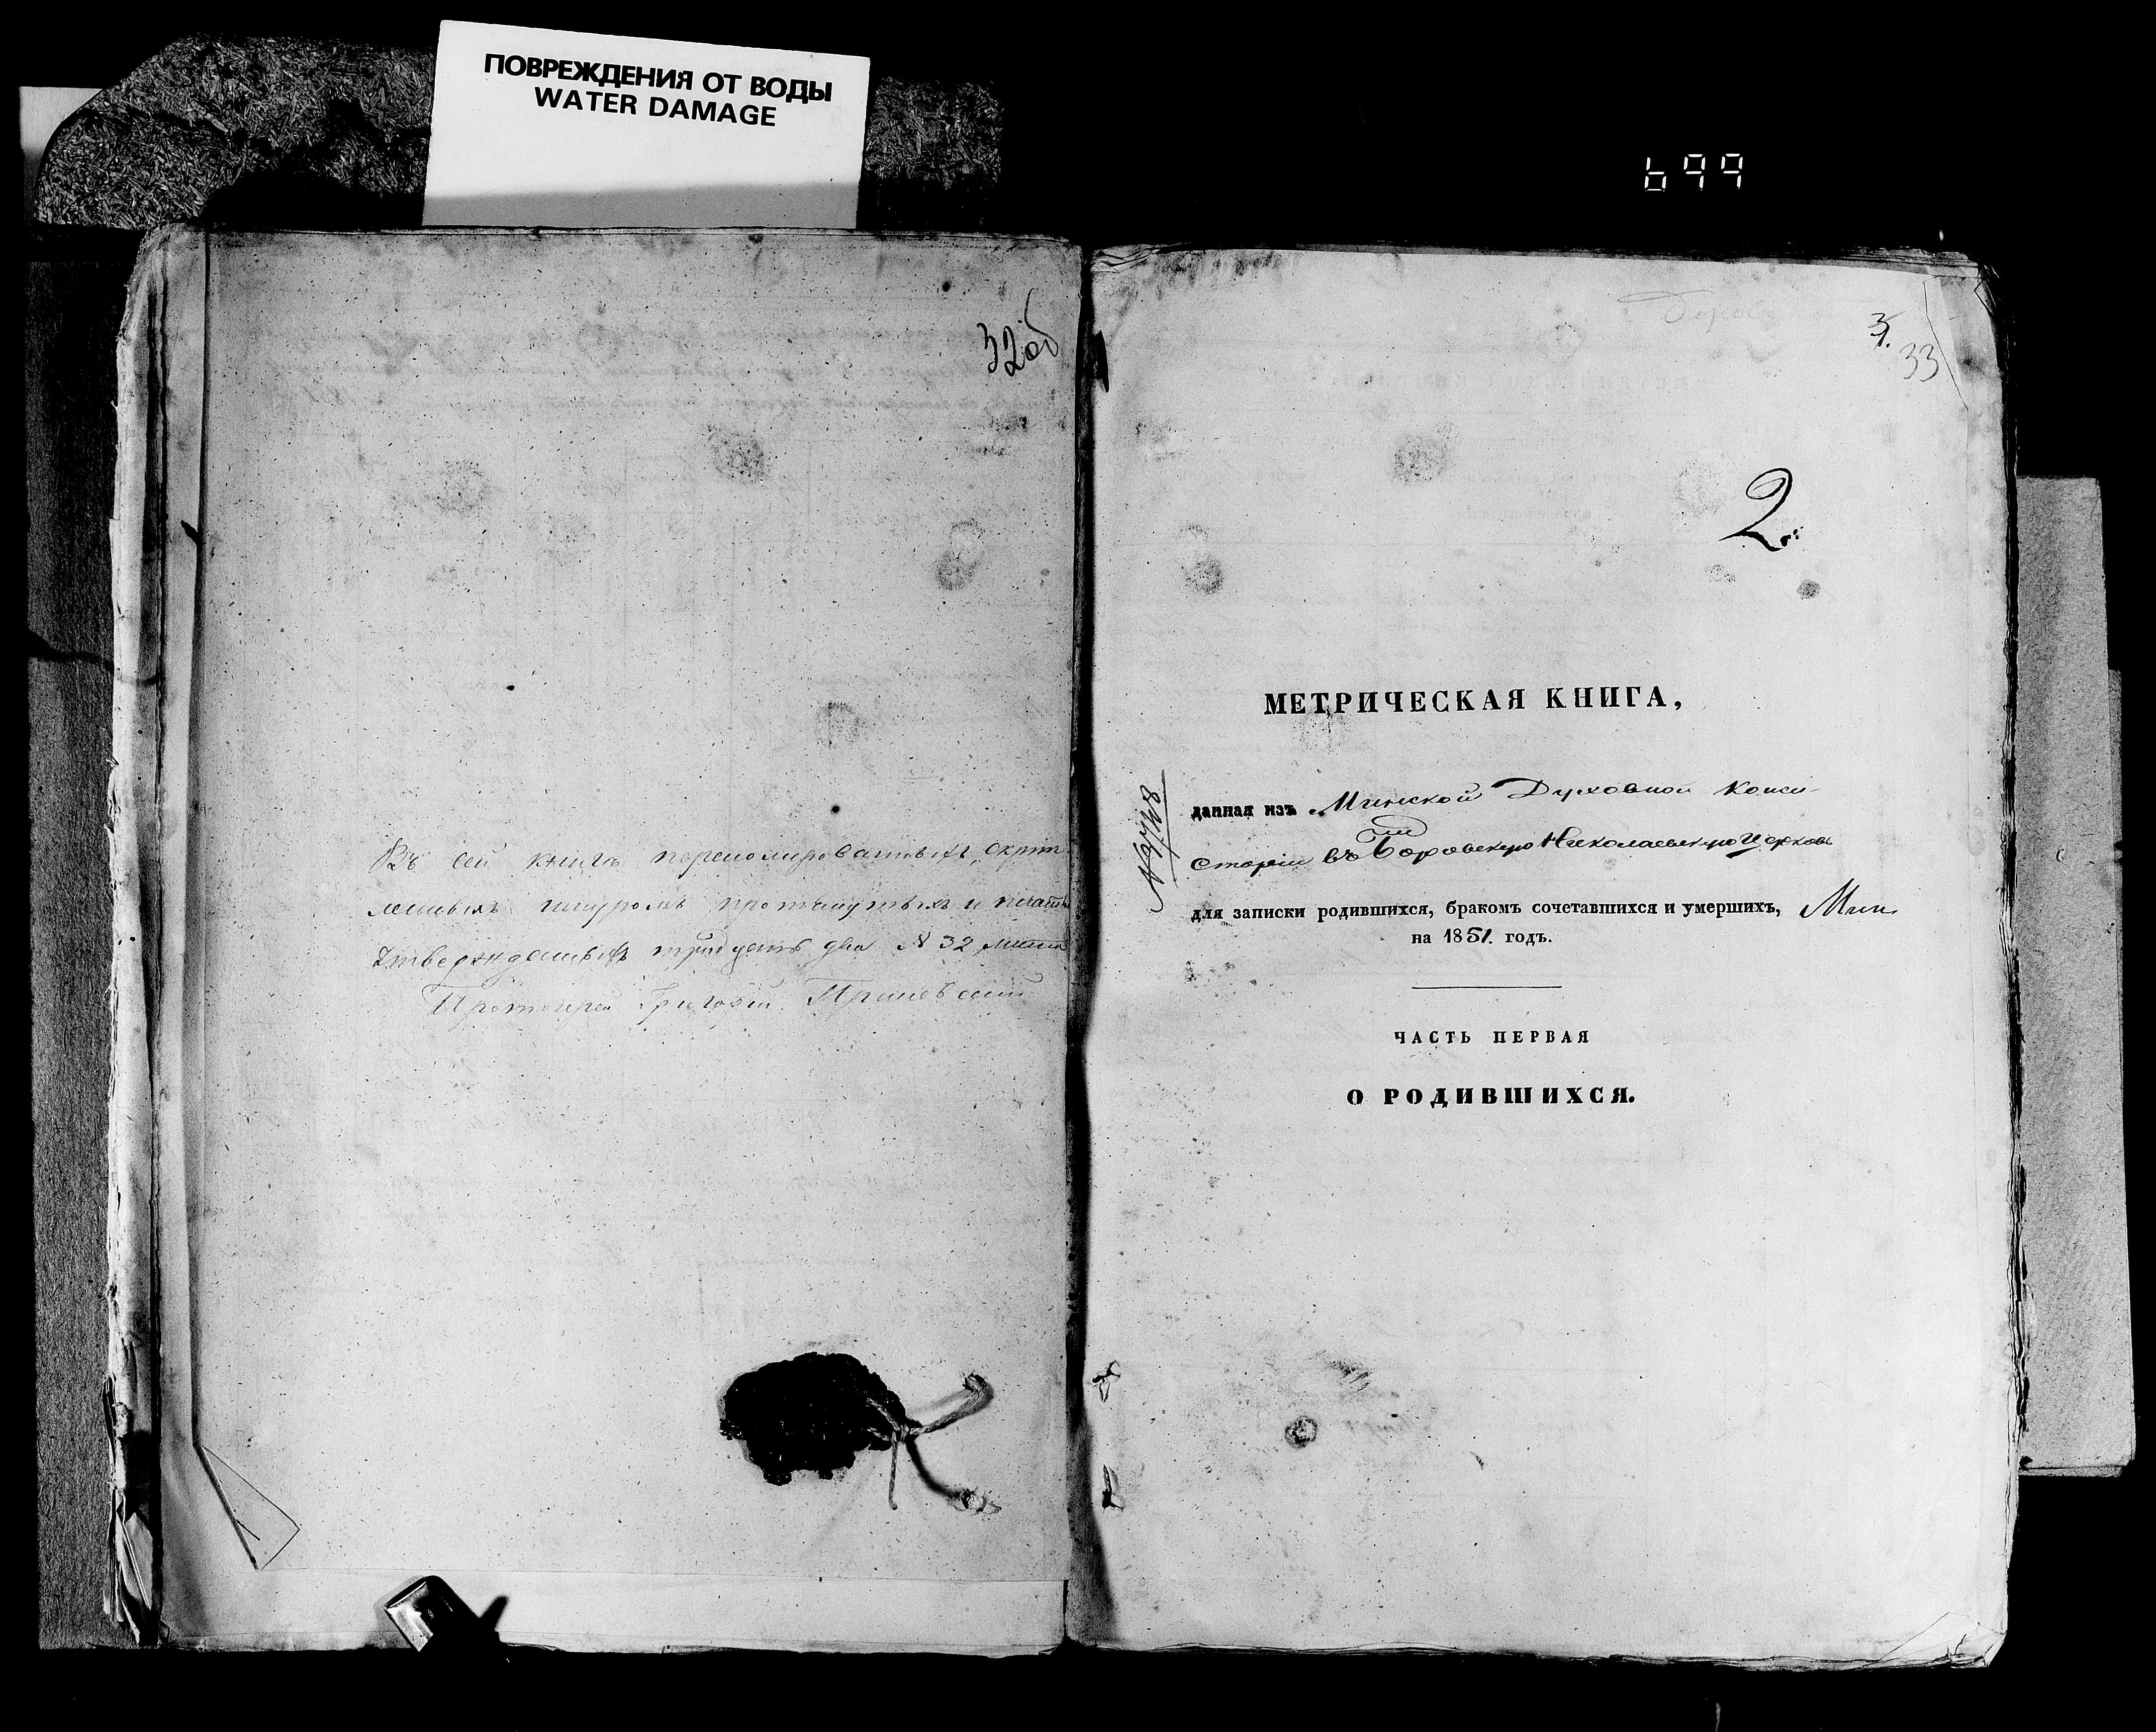 ПОВРЕЖДЕНИЯ ОТ ВОДЫ
WATER DAMAGE
699
32 об
Въ сей книгѣ перенумерованныхъ, скрѣп-
ленныхъ шнуромъ протянутыхъ и печатью
утвержденныхъ тридцать два № 32 листа
Протоіерей Григорій
33
2.
МЕТРИЧЕСКАЯ КНИГА,
данная изъ Минской Духовной Конси-
сторіи въ Боровскую Николаевскую Церковь
для записки родившихся, бракомъ сочетавшихся и умершихъ,
на 1851. годъ.
ЧАСТЬ ПЕРВАЯ
О РОДИВШИХСЯ.